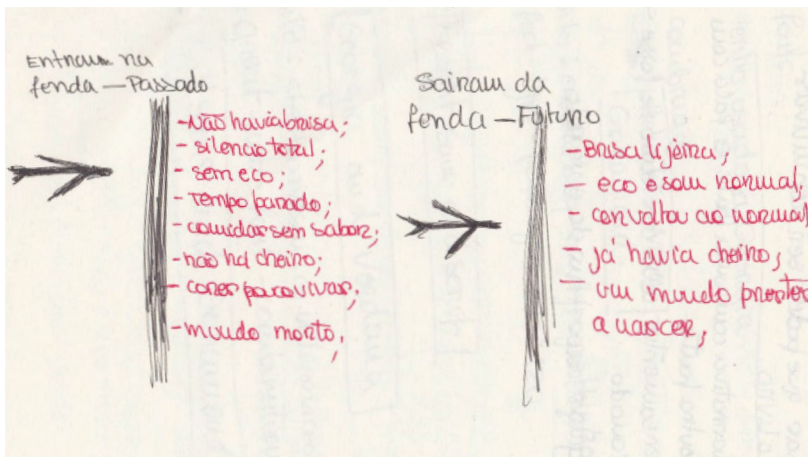 Entraram na
fenda — Passado
- Não havia brisa;
- silencio total;
- sem eco;
- Tempo parado;
- comidas sem sabor;
- não há cheiro;
- cores pouco vivas;
- mundo morto;
Sairam da
fenda — Futuro
- Brisa lijeira;
- eco e som normal;
- cor voltou ao normal
- já havia cheiro;
- um mundo prestes
a nascer;